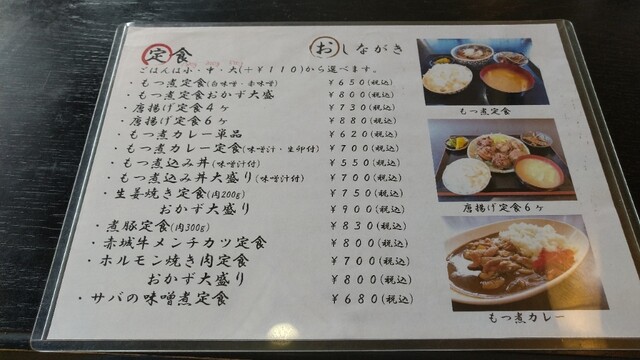 定食
おしながき
ごはんは小・中・大(+￥110)から選べます。
・もつ煮定食(白味噌・赤味噌) ￥650(税込)
・もつ煮定食おかず大盛 ￥800(税込)
・唐揚げ定食4ヶ ￥730(税込)
・唐揚げ定食6ヶ ￥880(税込)
・もつ煮カレー単品 ￥620(税込)
・もつ煮カレー定食(味噌汁・生卵付) ￥700(税込)
・もつ煮込み丼(味噌汁付) ￥550(税込)
・もつ煮込み丼大盛り(味噌汁付) ￥700(税込)
・生姜焼き定食(肉200g) ￥750(税込)
おかず大盛り ￥900(税込)
・煮豚定食(肉300g) ￥830(税込)
・赤城牛メンチカツ定食 ￥800(税込)
・ホルモン焼き肉定食 ￥700(税込)
おかず大盛り ￥800(税込)
・サバの味噌煮定食 ￥680(税込)
もつ煮定食
唐揚げ定食6ヶ
もつ煮カレー